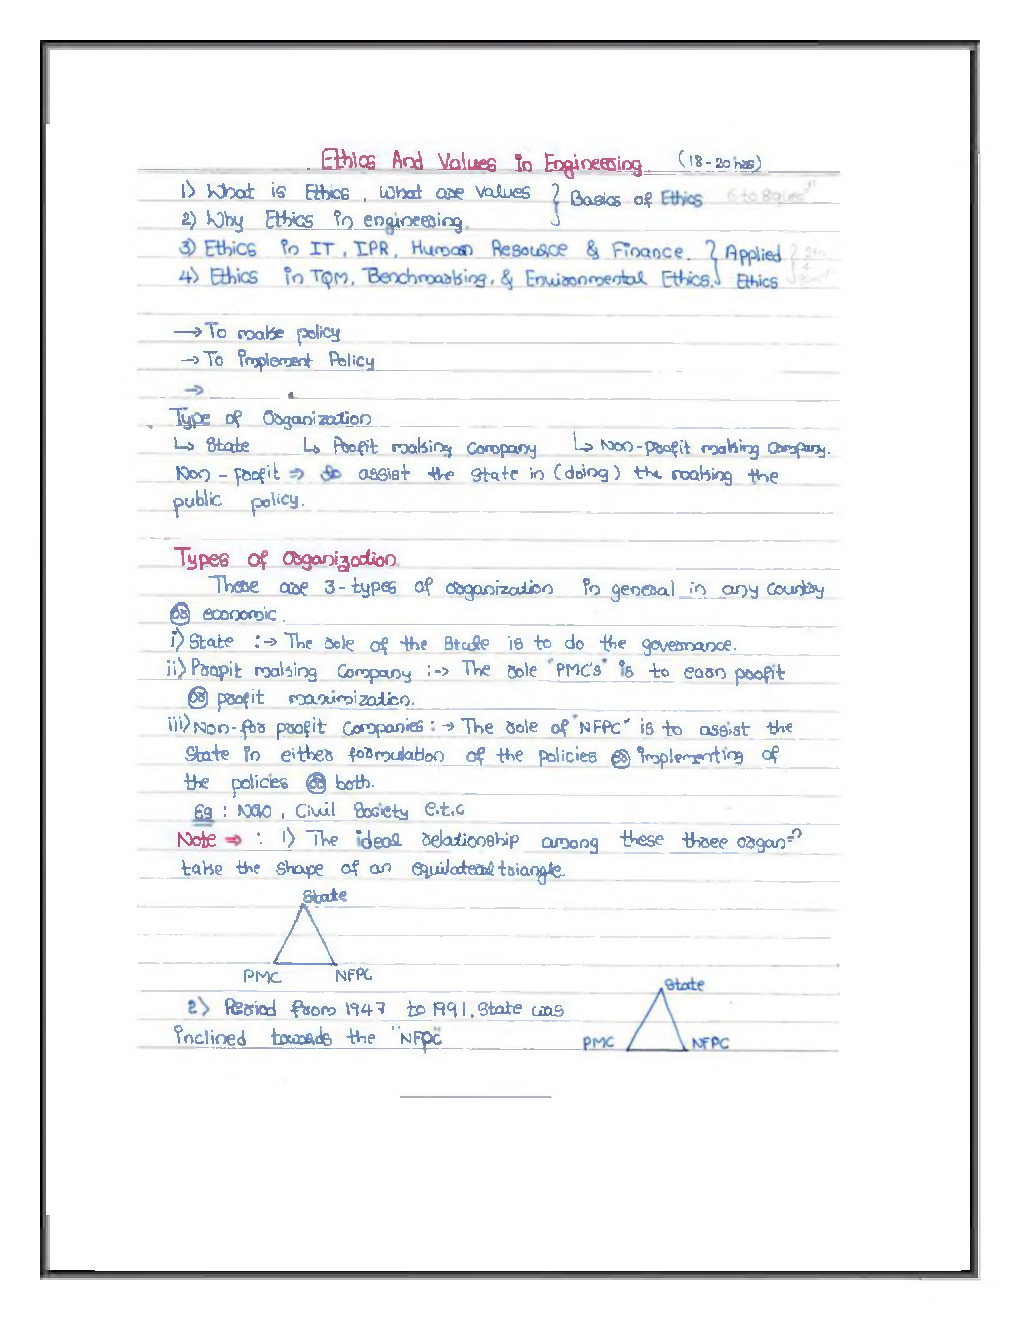 Ethics And Values In Engineering. (18-20 hrs)
1) What is Ethics, What are Values } Basics of Ethics 6 to 8 ques^n
2) Why Ethics in engineering.
3) Ethics in IT, IPR, Human Resource & Finance. } Applied
4) Ethics in TQM, Benchmarking, & Environmental Ethics. Ethics
→ To make policy
→ To implement Policy
→
Type of Organization
↳ State ↳ Profit making company ↳ Non-profit making Company.
Non - profit ⇒ to assist the state in (doing) the making the
public policy.
Types of Organization
There are 3-types of organization in general in any Country
or economic.
i) State :→ The role of the State is to do the governance.
ii) Profit making Company :-> The role "PMC's" is to earn profit
or profit maximization.
iii) Non-for profit Companies :→ The role of "NFPC" is to assist the
State in either formulation of the policies or implementing of
the policies or both.
Eg : NGO, Civil Society e.t.c
Note ⇒ : 1) The ideal relationship among these three organ=^n
take the shape of an equilateral triangle
State
PMC NFPC
State
2) Period from 1947 to 1991, State was
inclined towards the "NFPC"
PMC NFPC